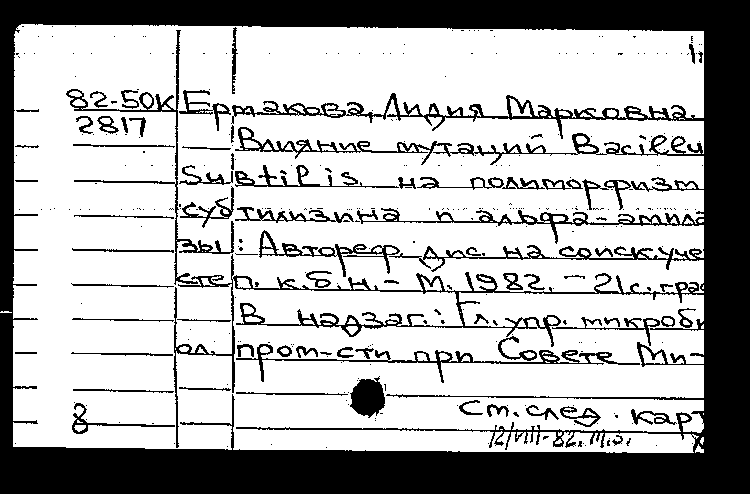 82-50К Ермакова, Лидия Марковна.
2817 Влияние мутаций Bacillu
Subtilis на полиморфизм
субтилизина и альфа-амила
зы: Автореф. дис. на соиск. уче
степ. к.б.н. - М. 1982. - 21с., граф
В надзаг.: Гл. упр. микроби
ол. пром-сти при Совете Ми-
8 См. след. карт
12/VIII-82. м.з.